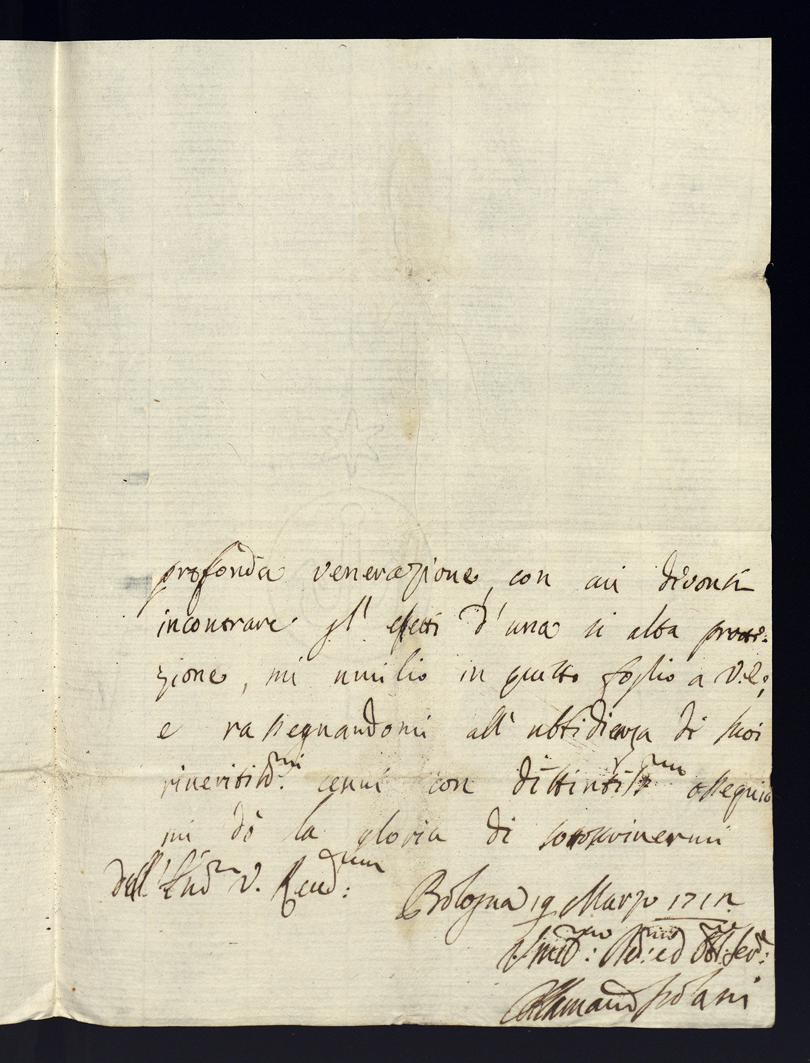 profonda venerazione, con cui divoti
incontrare gl' effetti d'una si alta prote:
zione, mi umilio in questo foglio a V.E;
e rassegnandomi all' ubbidienza di suoi
riveritiss.mi cenni con distintiss.mo ossequio
mi dò la gloria di sottoscrivermi
Dell' Em.za V. Reud.ma:
Bologna 19 Marzo 171
Umil.mo: ed Obl. Ser.e: